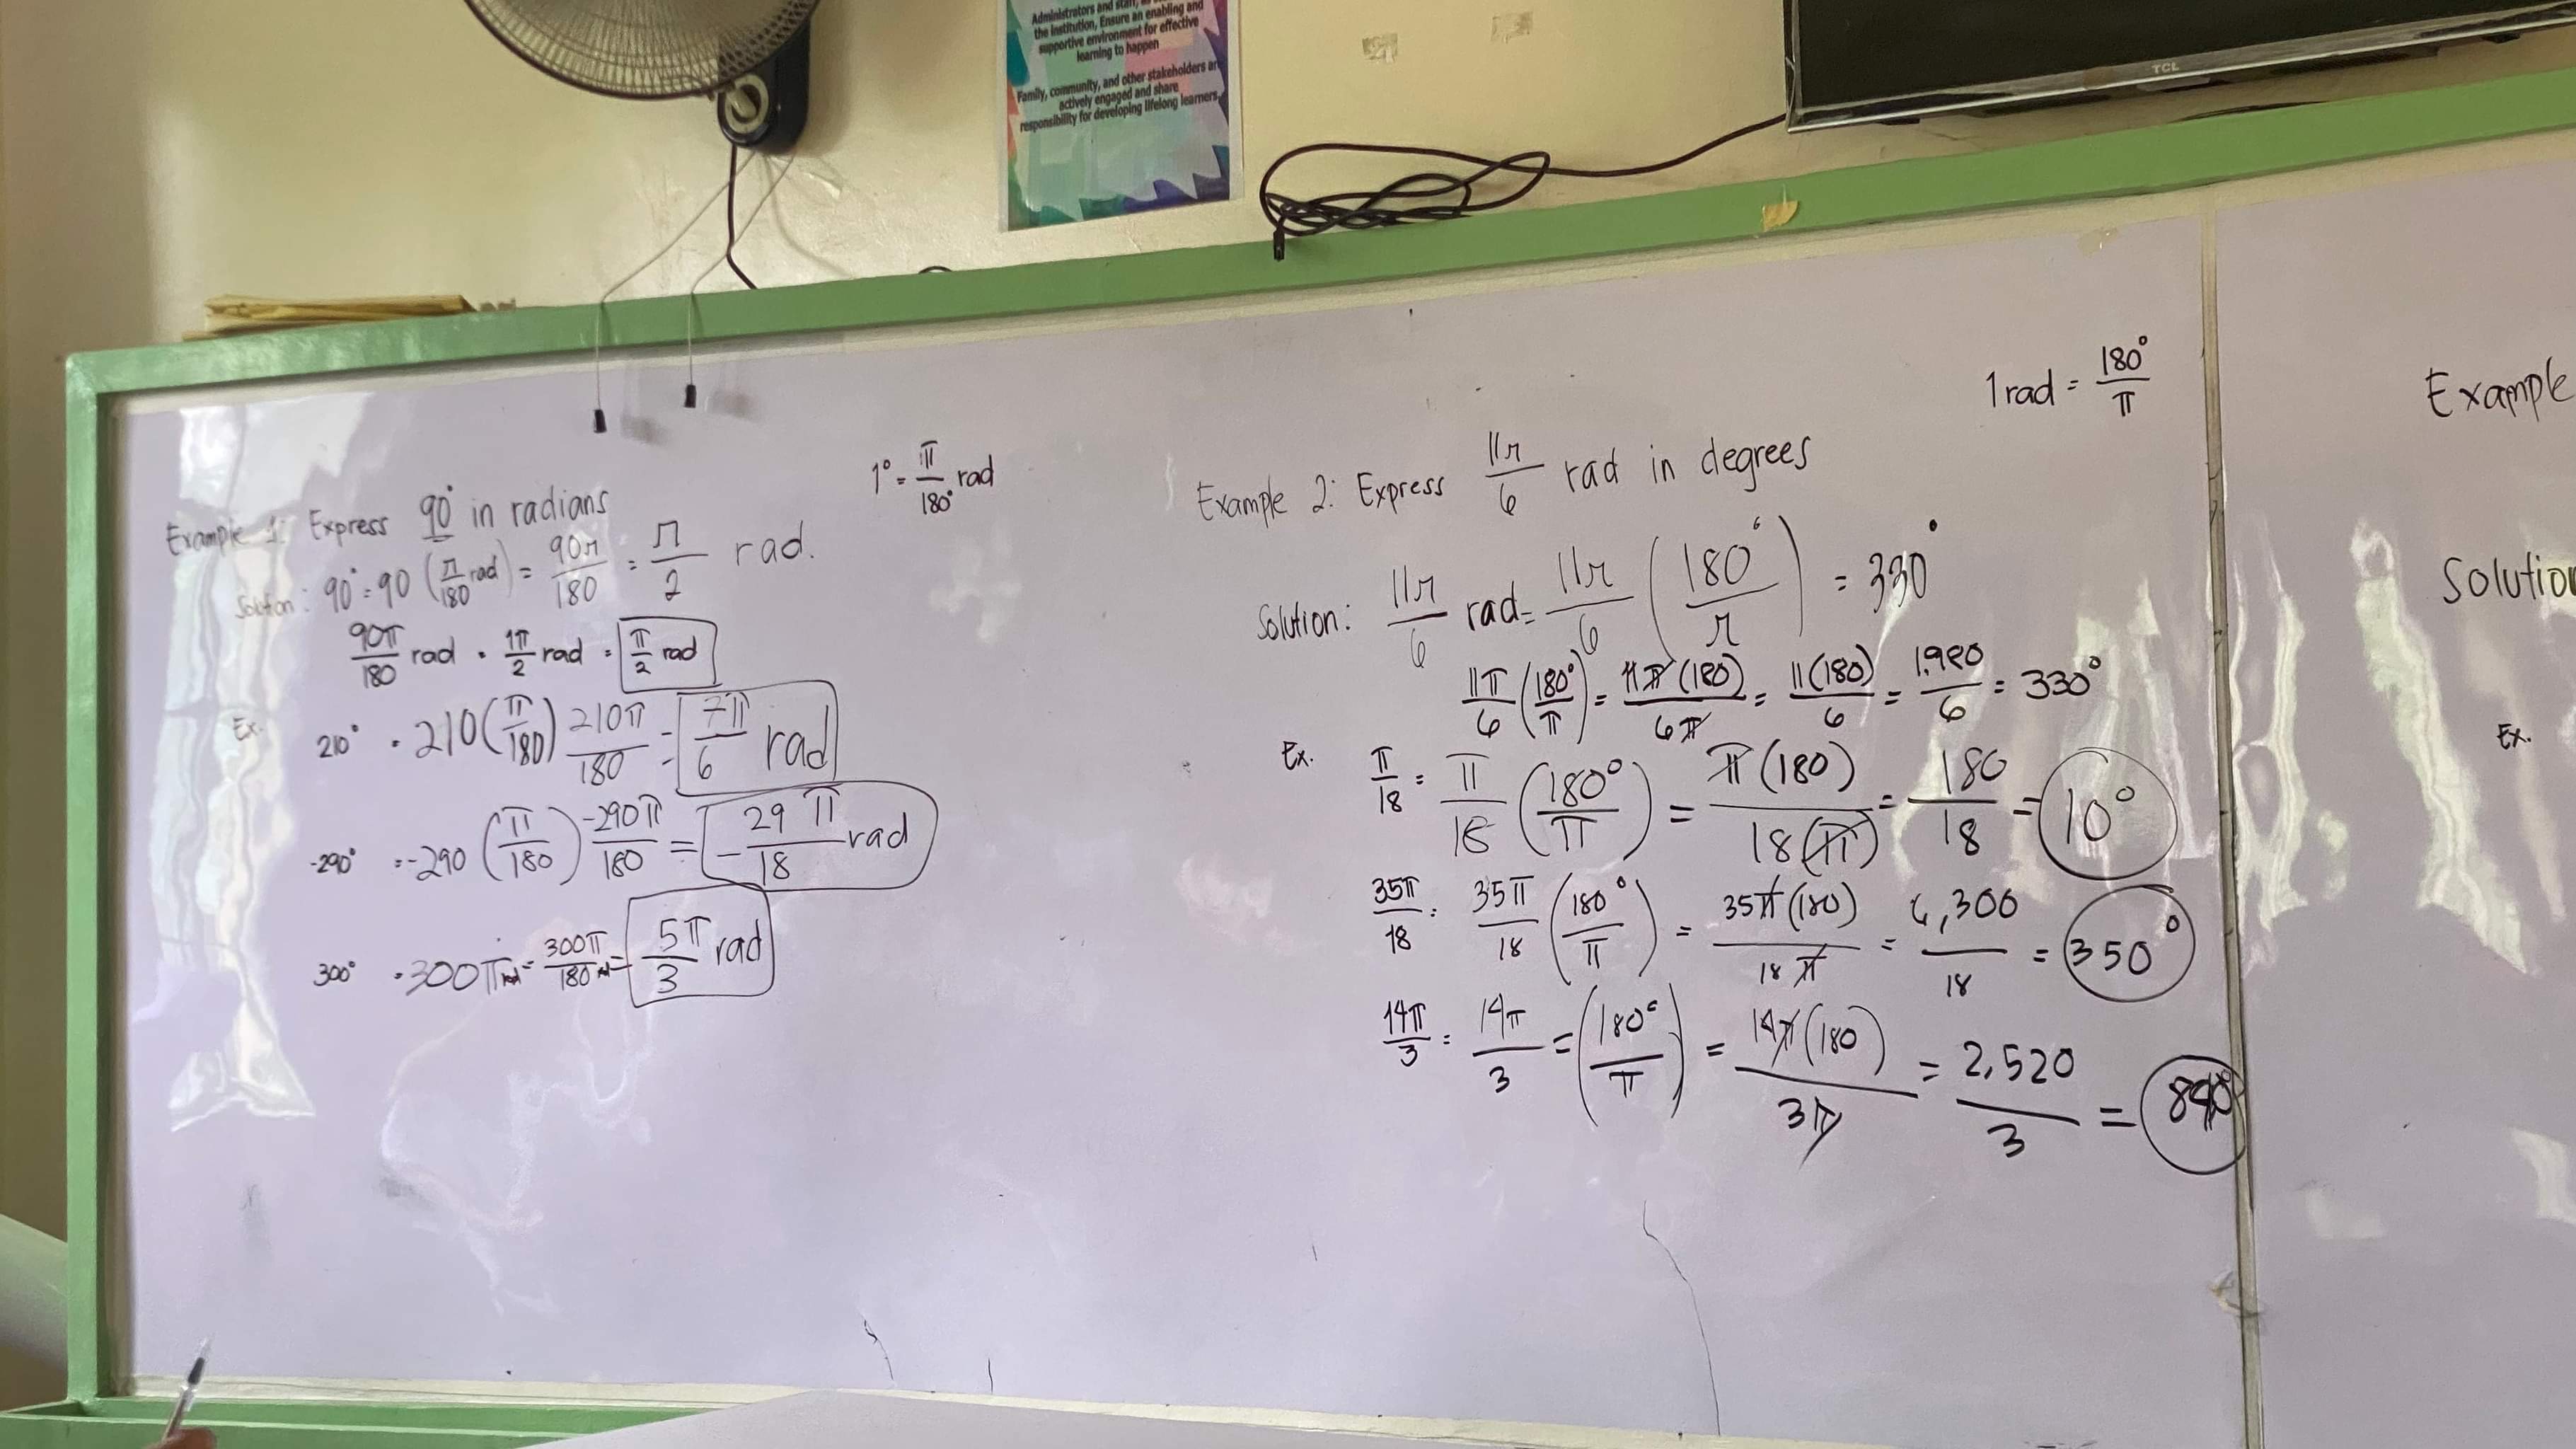 Administrators and staff, as
the institution, Ensure an enabling and
supportive environment for effective
learning to happen
Family, community, and other stakeholders ar
actively engaged and share
responsibility for developing lifelong learners.
TCL
1° = π/180° rad
Example 1: Express 90° in radians
Solution: 90° = 90 (π/180 rad) = 90π/180 = π/2 rad.
90π/180 rad = 1π/2 rad = π/2 rad
Ex.
210° = 210(π/180) 210π/180 = 7π/6 rad
-290° = -290 (π/180) -290π/180 = -29π/18 rad
300° = 300π rad = 300π/180 rad = 5π/3 rad
1 rad = 180°/π
Example 2: Express 11π/6 rad in degrees
Solution: 11π/6 rad = 11π/6 (180°/π) = 330°
11π/6 (180°/π) = 11π(180)/6π = 11(180)/6 = 1,980/6 = 330°
Ex. π/18 = π/18 (180°/π) = π(180)/18(π) = 180/18 = 10°
35π/18 = 35π/18 (180°/π) = 35π(180)/18π = 6,300/18 = 350°
14π/3 = 14π/3 = (180°/π) = 14π(180)/3π = 2,520/3 = 840°
Example
Solution
Ex.